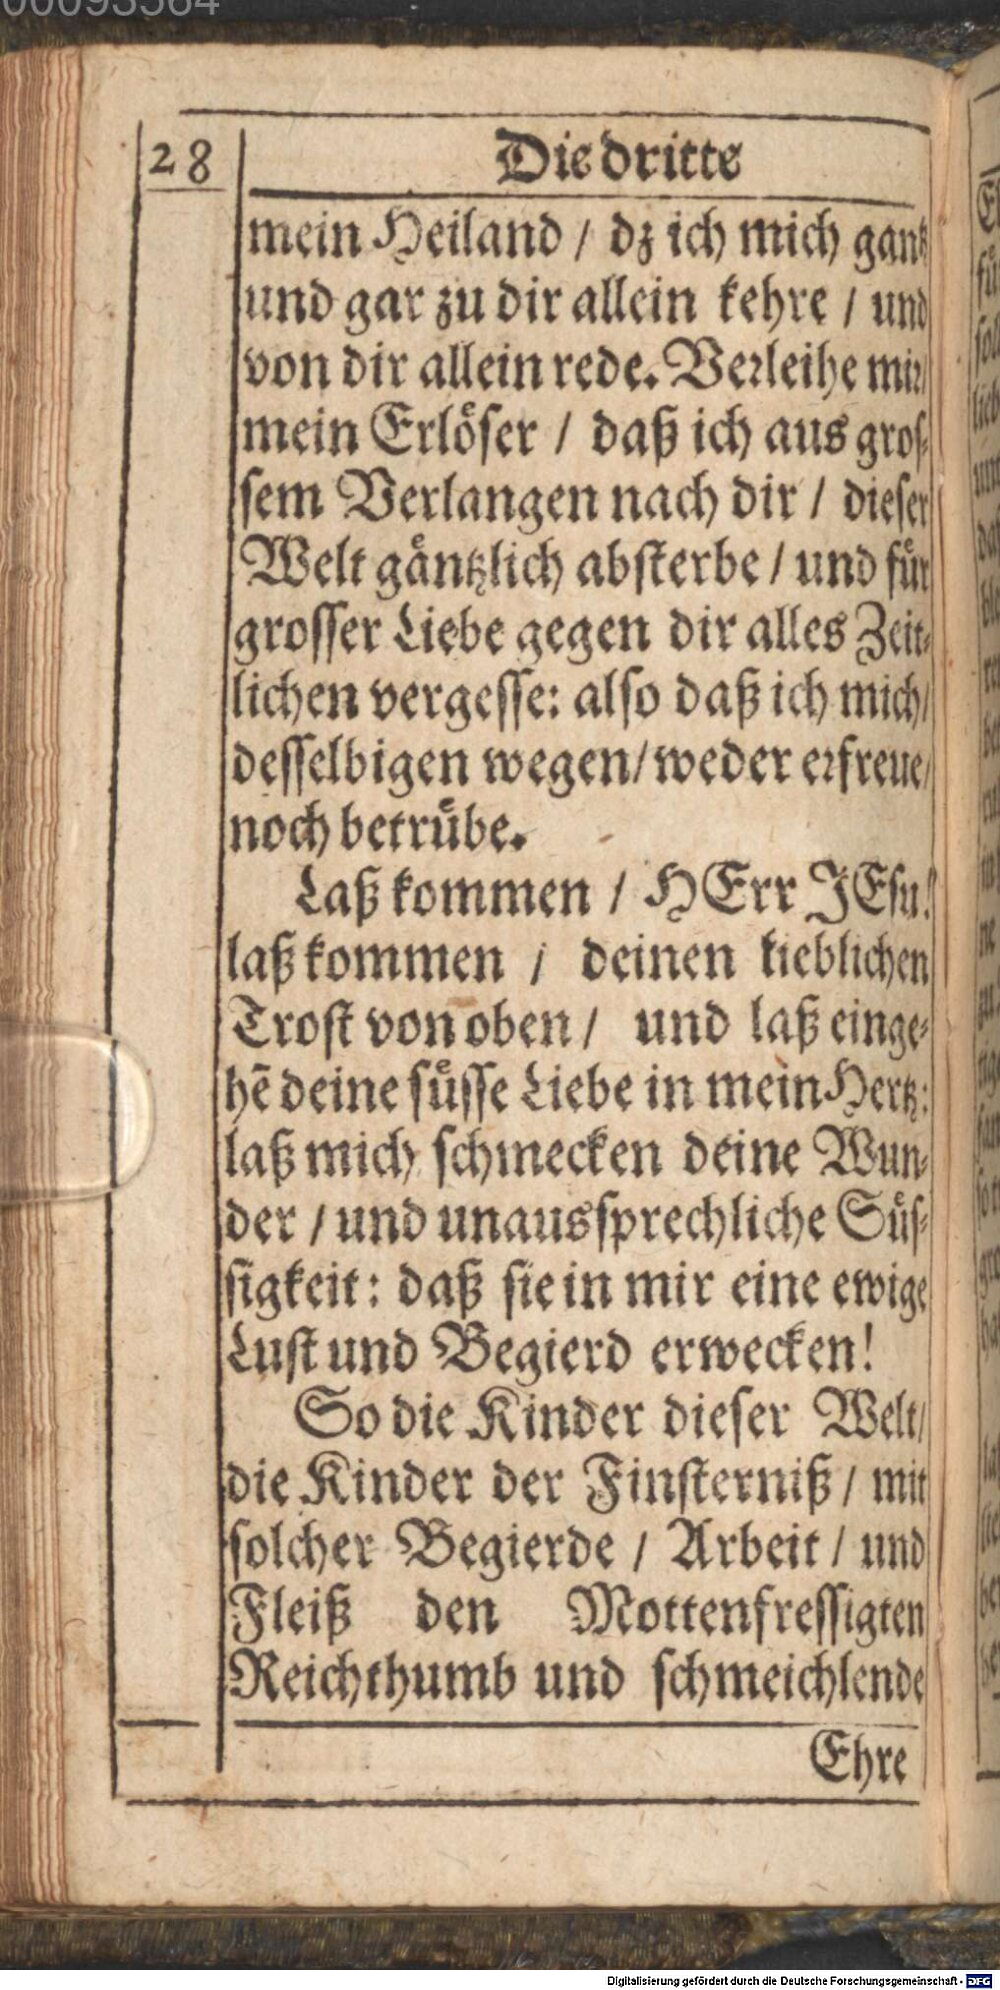 00093564
28
Die dritte
mein Heiland / dz ich mich gantz
und gar zu dir allein kehre / und
von dir allein rede. Verleihe mir/
mein Erlöser / daß ich aus gros-
sem Verlangen nach dir / dieser
Welt gäntzlich absterbe / und für
grosser Liebe gegen dir alles Zeit-
lichen vergesse: also daß ich mich/
desselbigen wegen/ weder erfreue/
noch betrübe.
Laß kommen / HErr JEsu!
laß kommen / deinen lieblichen
Trost von oben / und laß einge-
hē deine süsse Liebe in mein Hertz:
laß mich schmecken deine Wun-
der / und unaussprechliche Süs-
sigkeit: daß sie in mir eine ewige
Lust und Begierd erwecken!
So die Kinder dieser Welt/
die Kinder der Finsterniß / mit
solcher Begierde / Arbeit / und
Fleiß den Mottenfressigten
Reichthumb und schmeichlende
Ehre
Digitalisierung gefördert durch die Deutsche Forschungsgemeinschaft - DFG